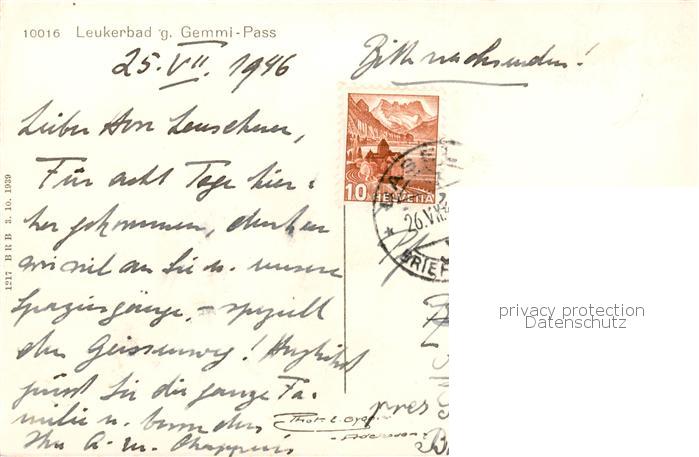 10016 Leukerbad g. Gemmi-Pass
25. VII. 1946
Bitte nachsenden!
Lieber Herr
Für acht Tage hier-
her gekommen, denken
wir viel an Sie u. unsere
Spaziergänge, – speziell
den Geissenweg! Herzlichst
grüsst Sie die ganze Fa-
milie u. besonders
Ihr A. M. Chappuis
10 HELVETIA
26.VII.
BRIEF
1217 BRB 3. 10. 1939
pres
privacy protection
Datenschutz